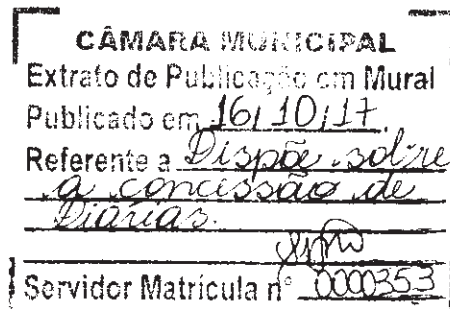 CÂMARA MUNICIPAL
Extrato de Publicação em Mural
Publicado em 16/10/17.
Referente a Dispõe sobre
a concessão de
Diárias.
Servidor Matrícula nº 0000353